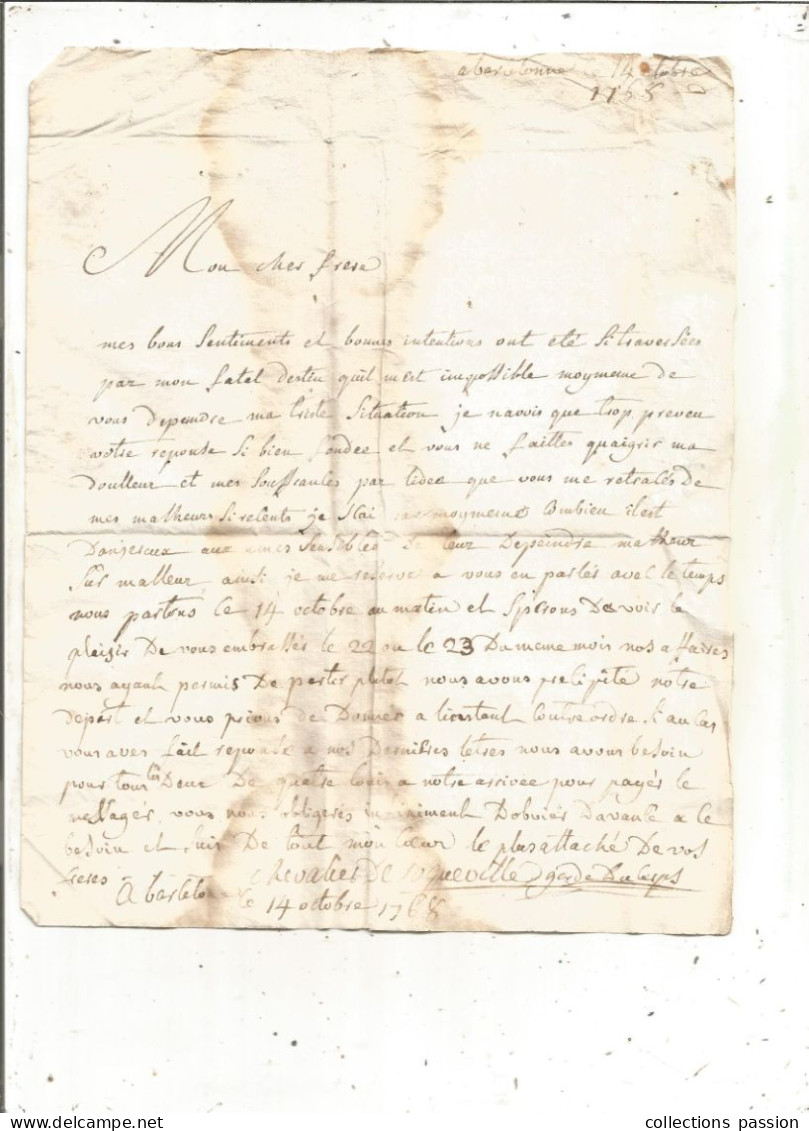 a barcelonne le 14 octobre
1768
Mon cher frere
mes bons sentiments et bonnes intentions ont été si traversées
par mon fatal destin quil mest impossible moymeme de
vous depeindre ma triste situation je navois que trop preveu
votre reponse si bien fondee et vous ne failles quaigrir ma
doulleur et mes souffrances par lidee que vous me retracés de
mes malheurs si relents je scai moymeme combien il est
Danjereux aux ames sensibles De leur Depeindre malheur
sur malleur ainsi je me reserve a vous en parlés avec le temps
nous partons le 14 octobre au matin et sperons De voir le
pleisir De vous embrassés le 22 ou le 23 Du meme mois nos affaires
nous ayant permis De partir plutot nous avons precipité notre
depart et vous prions de Donner a linstant contre ordre si au cas
vous aves fait reponse a nos Dernieres letres nous avons besoin
pour tous les Deux De quatre louis a notre arrivee pour payés le
messager vous nous obligeres infiniment Dobvier Davance a ce
besoin et suis De tout mon coeur le plus attaché De vos
freres chevalier De garde Du corps
A barcelo le 14 octobre 1768
collections passion